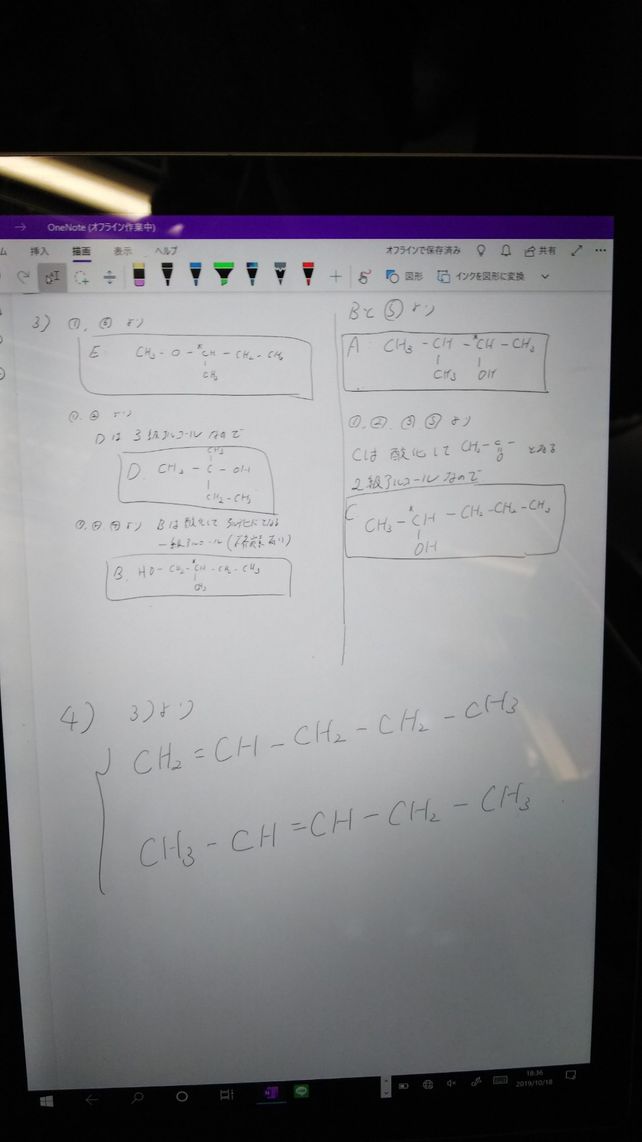 OneNote (オフライン作業中)
挿入 描画 表示 ヘルプ オフラインで保存済み 共有
図形 インクを図形に変換
3) ①, ⑥ より
E CH₃ - O - *CH - CH₂ - CH₃
CH₃
より
Dは 3級アルコール なので
CH₃
D. CH₃ - C - OH
CH₂-CH₃
より Bは酸化して
一級アルコール
B. HO- CH₂ - *CH - CH₂ - CH₃
CH₃
Bと⑤より
A CH₃ - CH - *CH - CH₃
CH₃ OH
①, ②, ③ ⑤ より
Cは 酸化して CH₃- C - となる
O
2級アルコールなので
C CH₃ - *CH - CH₂ - CH₂ - CH₃
OH
4) 3)より
CH₂ = CH - CH₂ - CH₂ - CH₃
CH₃ - CH = CH - CH₂ - CH₃
18:36
2019/10/18